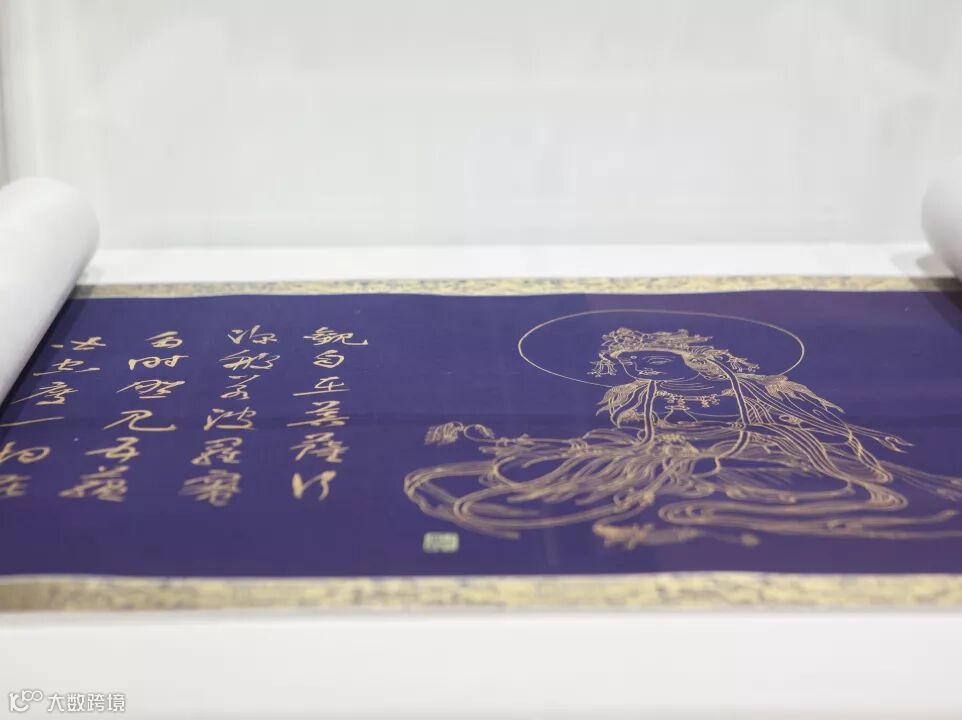 觀自在菩薩行
深般若波羅蜜
多時照見五蘊
皆空度一切苦
大数跨境